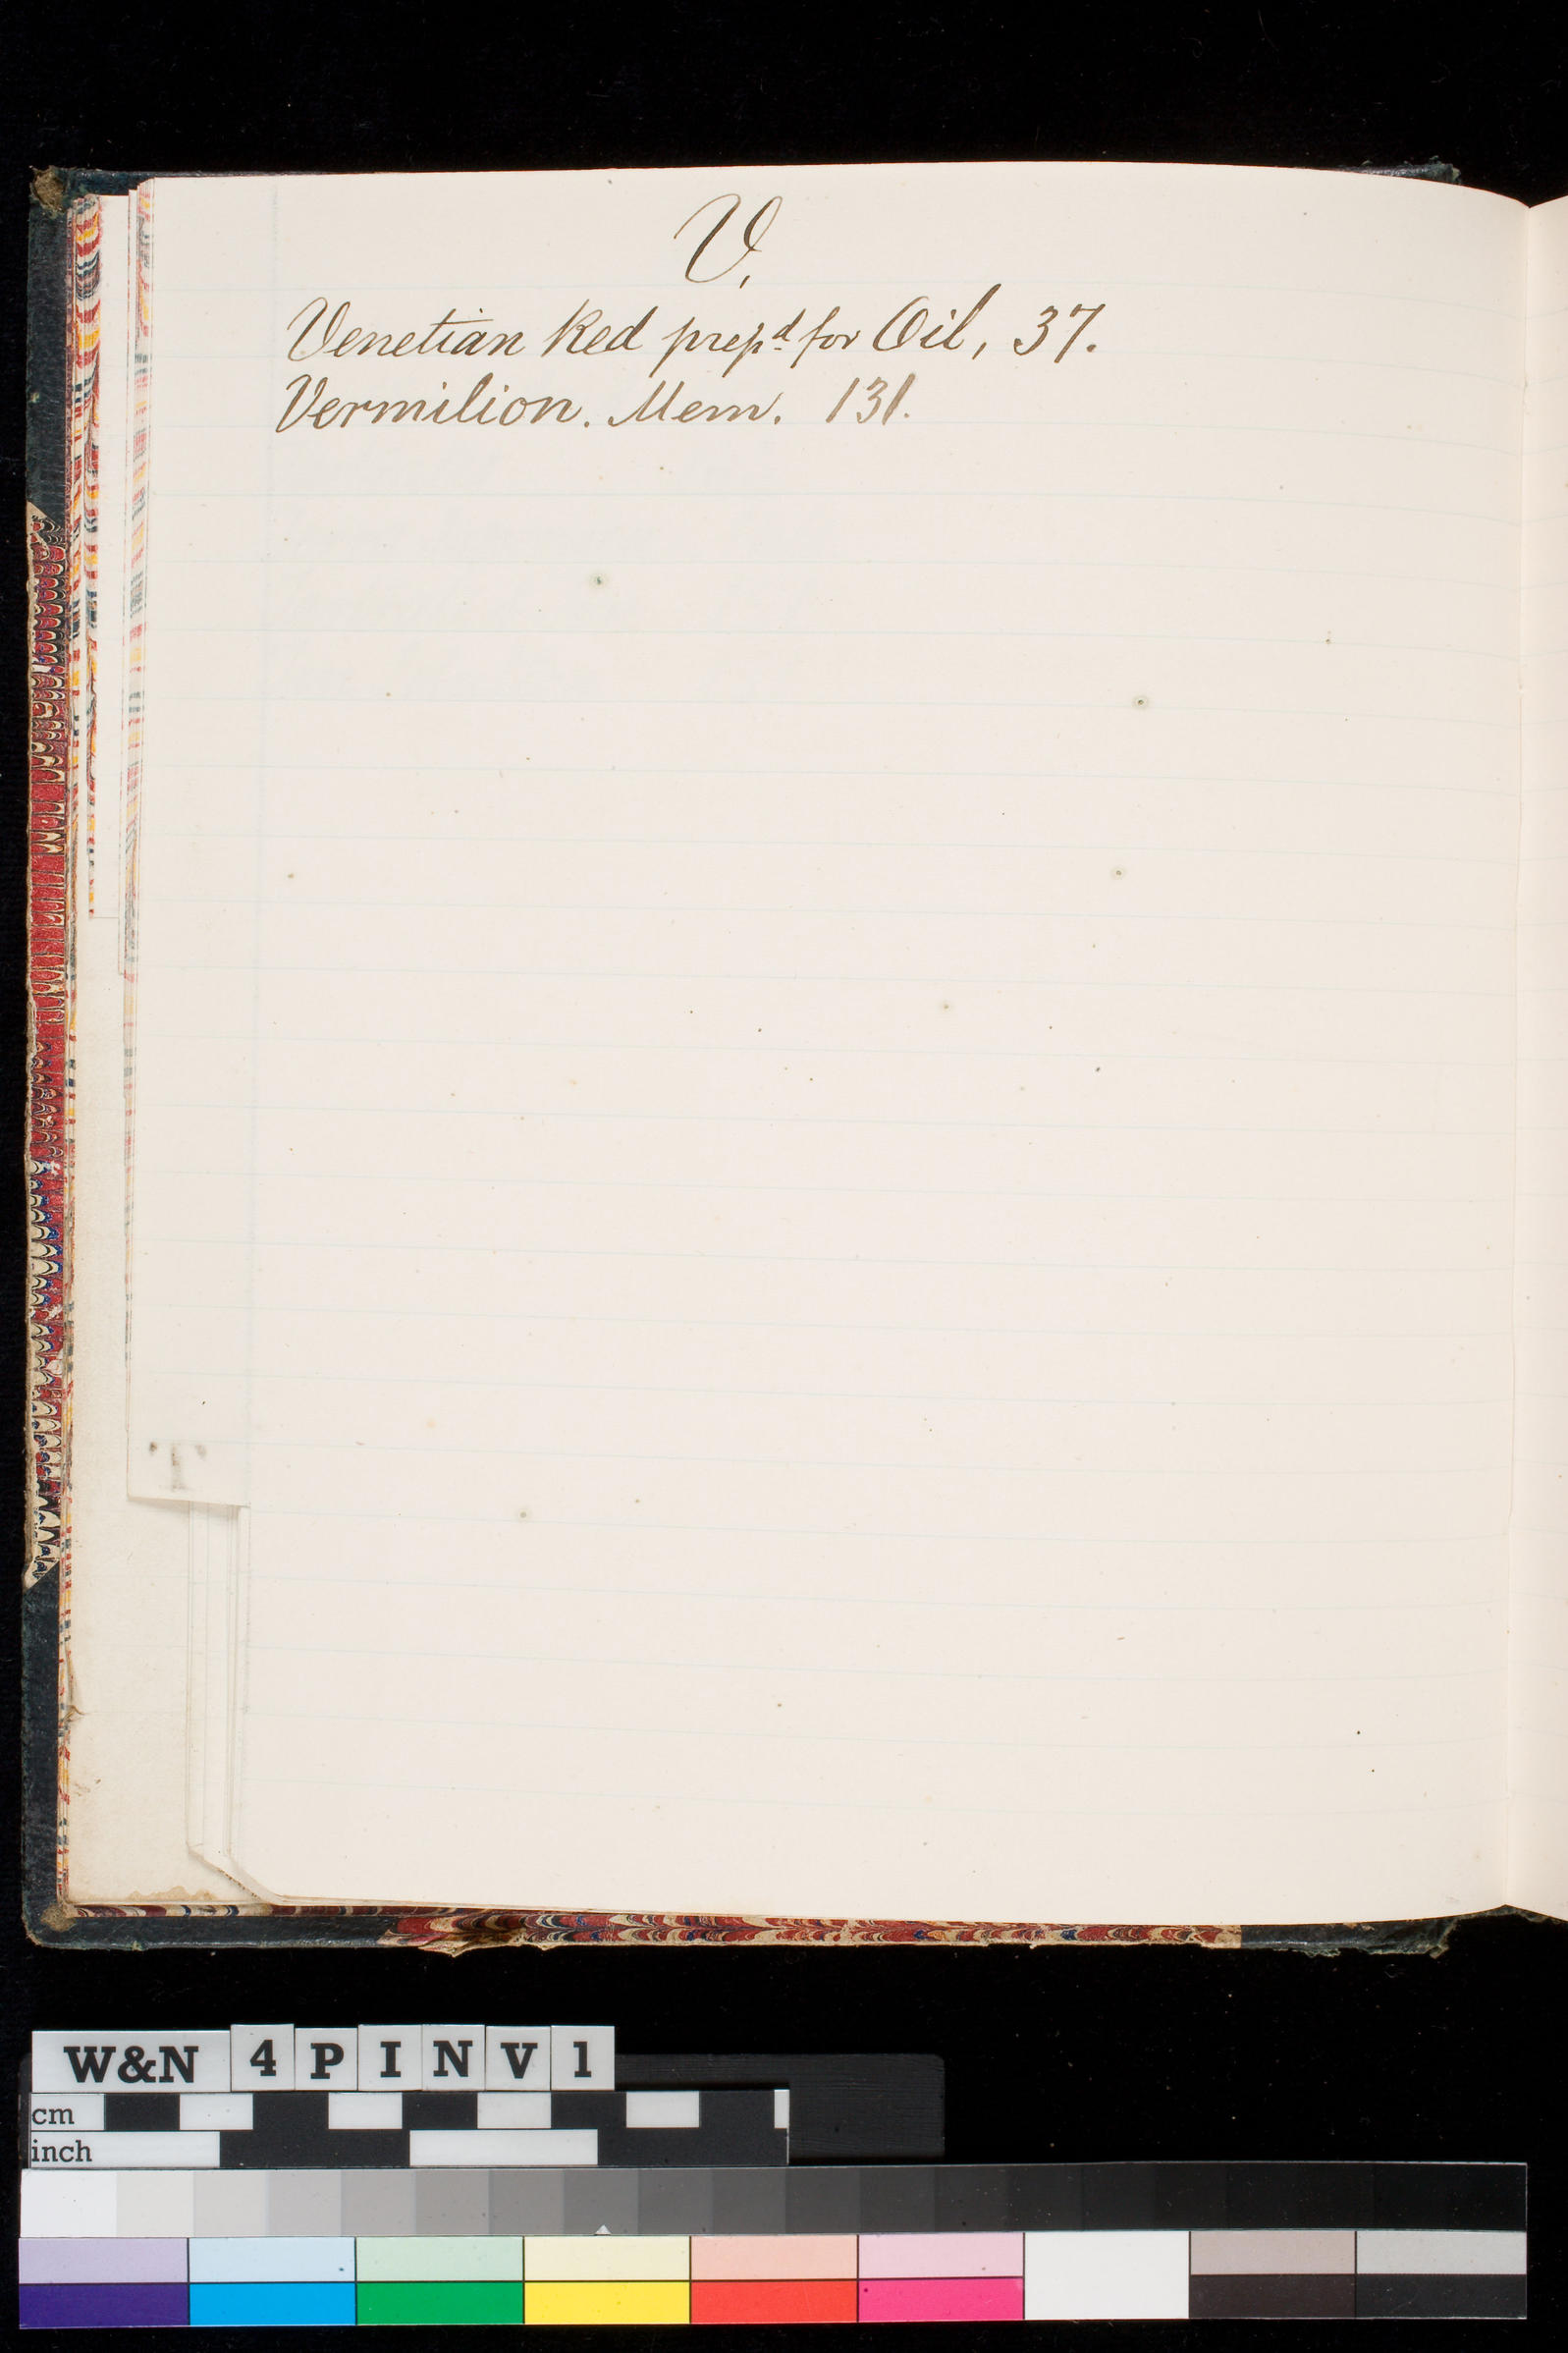 V.
Venetian Red prepd for Oil, 37.
Vermilion. Mem. 131.
T
W&N 4 P I N V 1
cm
inch